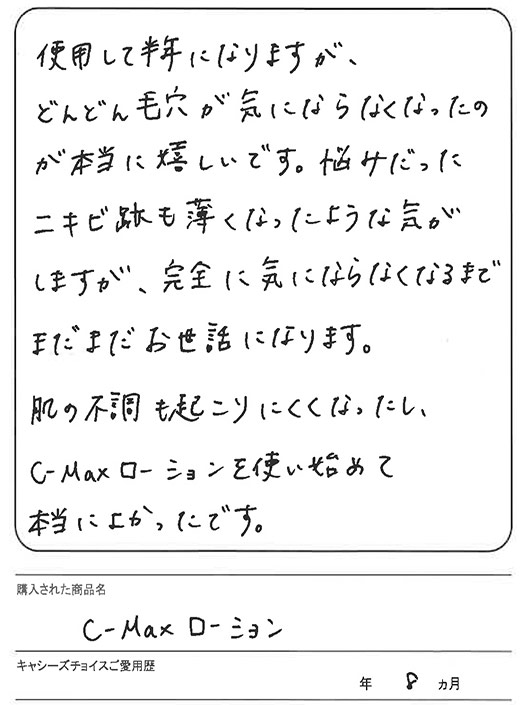 使用して半年になりますが、
どんどん毛穴が気にならなくなったの
が本当に嬉しいです。悩みだった
ニキビ跡も薄くなったような気が
しますが、完全に気にならなくなるまで
まだまだお世話になります。
肌の不調も起こりにくくなったし、
C-Maxローションを使い始めて
本当によかったです。
購入された商品名
C-Maxローション
キャシーズチョイスご愛用歴
年 8 ヵ月